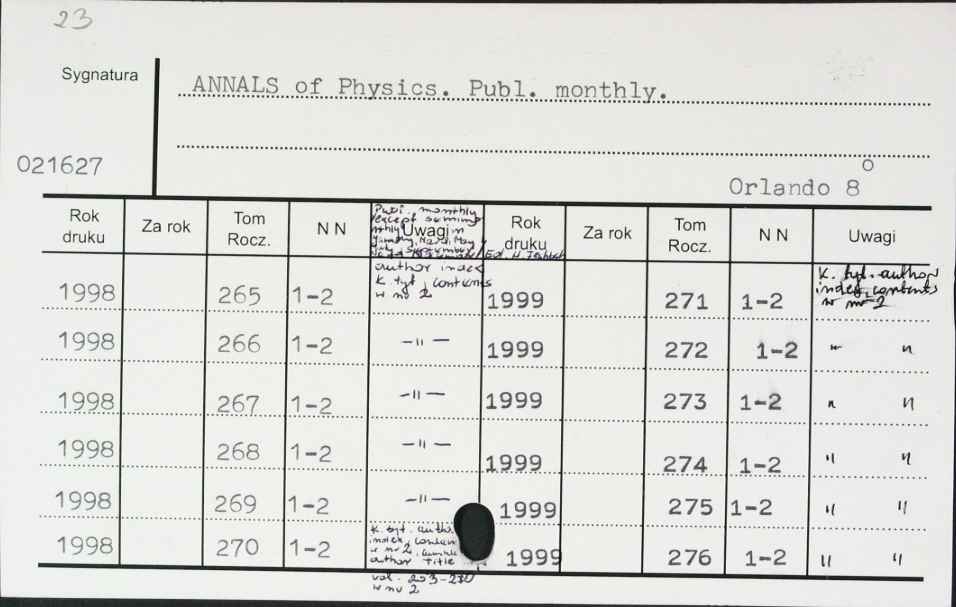 23
Sygnatura
ANNALS of Physics. Publ. monthly.
021627
Orlando 8°
Rok druku Za rok Tom Rocz. N N Uwagi Rok druku Za rok Tom Rocz. N N Uwagi
Publ. monthly
except
May
author index
K. tyt., contents
w nr 2
K. tyt. author
index, contents
w nr 2
1998 265 1-2 1999 271 1-2
1998 266 1-2 -"- 1999 272 1-2 " "
1998 267 1-2 -"- 1999 273 1-2 " "
1998 268 1-2 -"- 1999 274 1-2 " "
1998 269 1-2 -"- 1999 275 1-2 " "
1998 270 1-2 1999 276 1-2 " "
K. tyt. auth
index, conten
w nr 2,
author Title
vol. 203-270
w nr 2